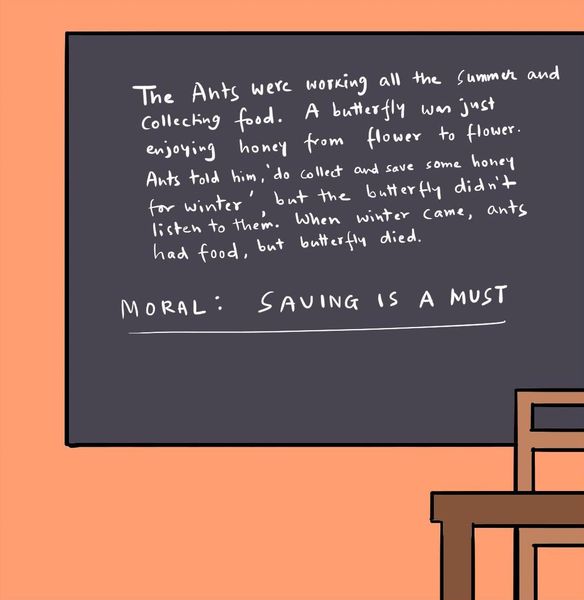 The Ants were working all the summer and
collecting food. A butterfly was just
enjoying honey from flower to flower.
Ants told him, 'do collect and save some honey
for winter', but the butterfly didn't
listen to them. When winter came, ants
had food, but butterfly died.
MORAL: SAVING IS A MUST